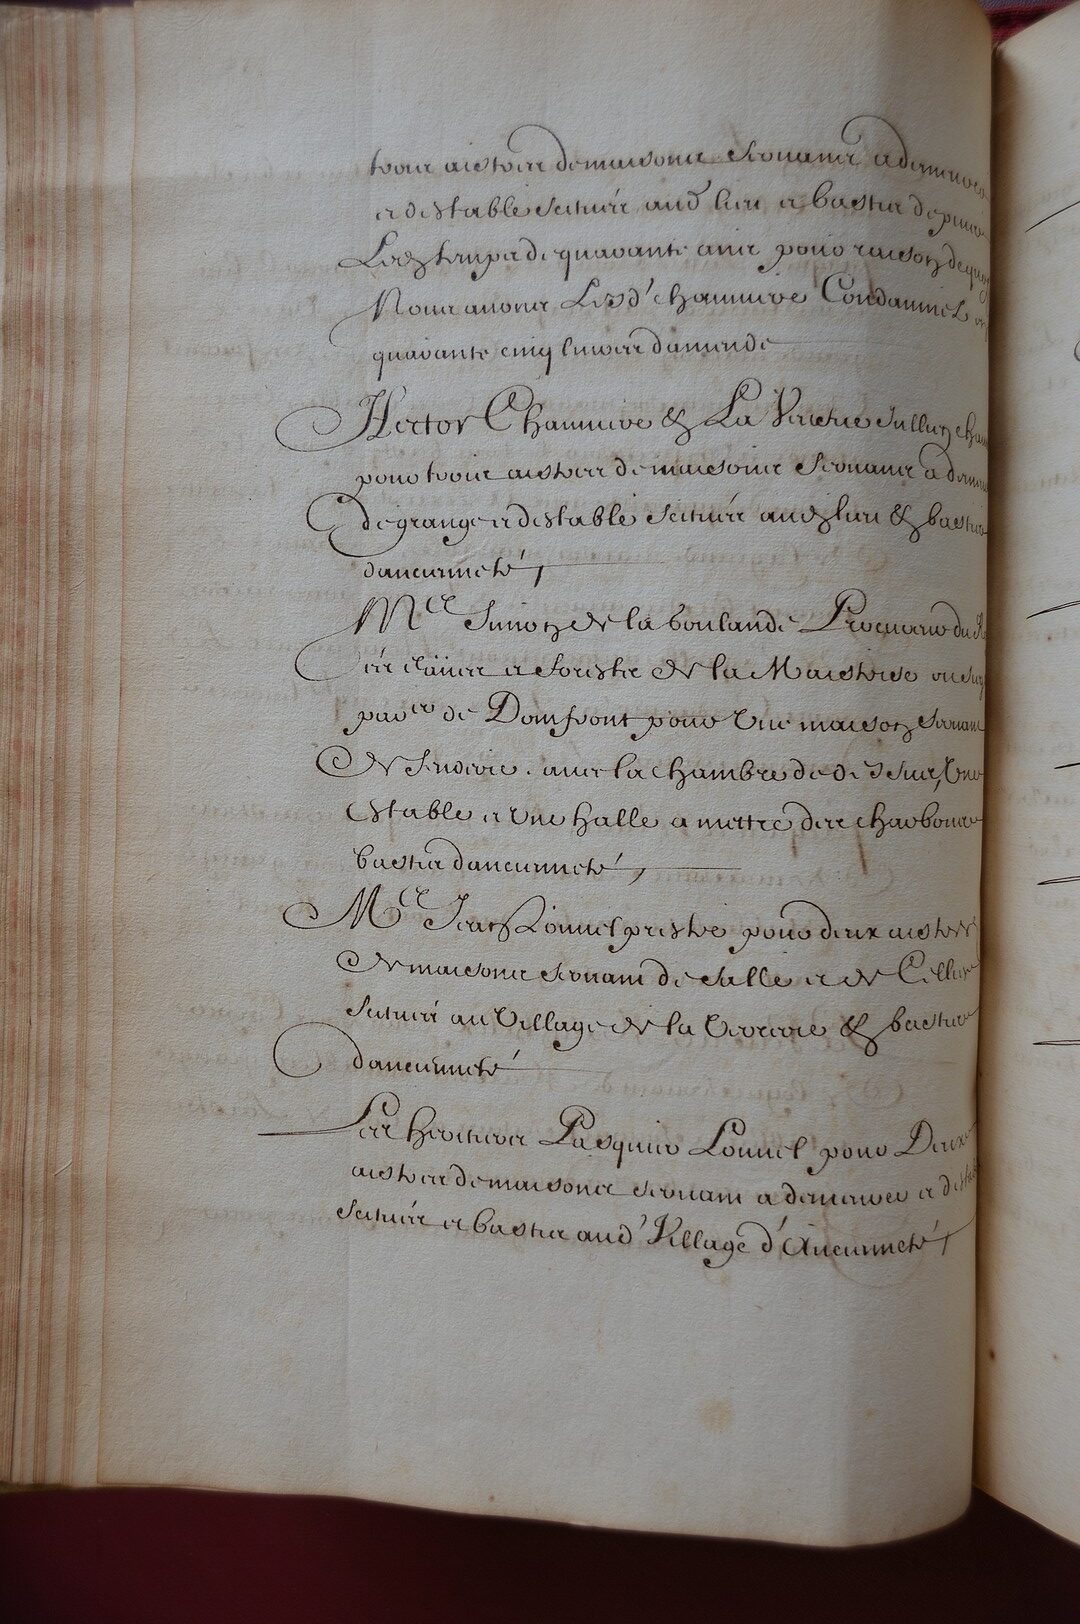 trois aistres de maisons servans a demeurer
et destable scituéz aud lieu et bastis depuis
Led temps de quarante ans pour raison de quoy
Nous avons Lesd' Chauviere Condamnez en
quarante cinq livres damende
Hector Chauviere & La Veufve Jullien Chau
pour trois aistres de maisons servans a demeu
de grange et destable scituéz aud lieu & bastis
dancienneté
Me Simon de la boulande Procureur du Roy
és eaües et forestz de la Maistrise
parre de Domfront pour Une maison servant
de fenderie avec la chambre de dessus, Une
Estable et Une halle a mettre des charbons
bastis dancienneté
Me Jean Lonnel prestre pour deux aistres
de maisons servant de salle et de Cellier
scituéz au Village de la Verrerie & bastis
dancienneté
Les heritiers Pasquier Lonnel pour Deux
aistres de maisons servans a demeurer et destable
scituéz et bastis aud' Village d'ancienneté